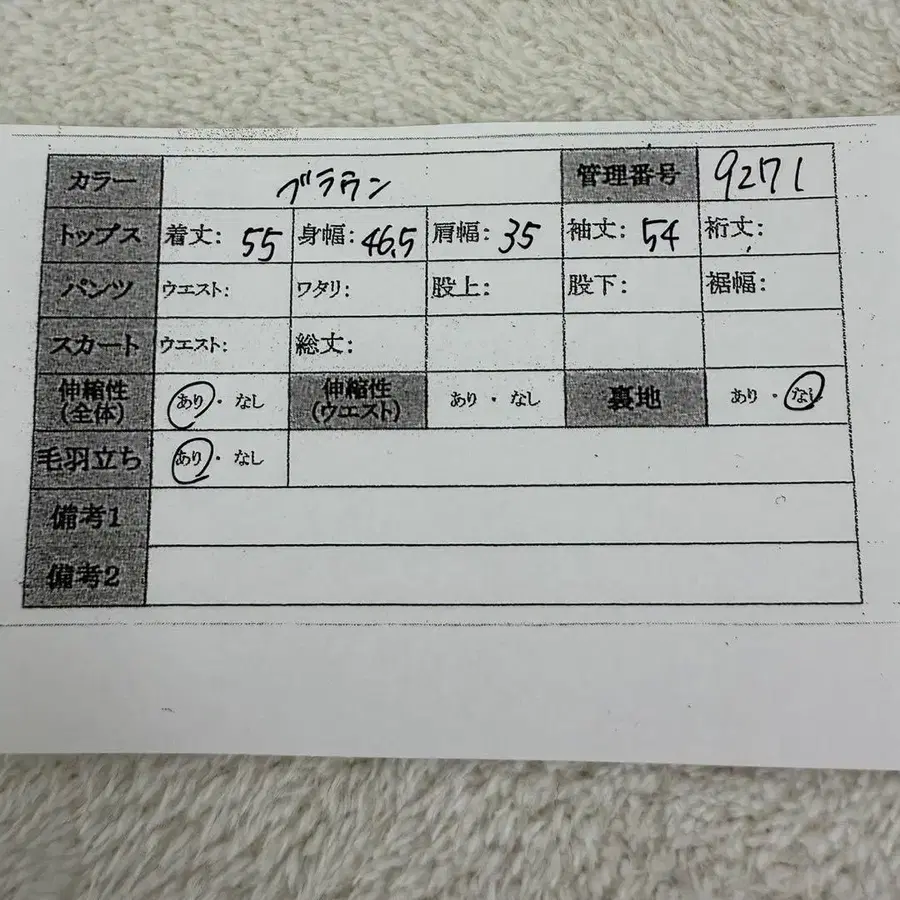 カラー ブラウン 管理番号 9271
トップス 着丈: 55 身幅: 46.5 肩幅: 35 袖丈: 54 裄丈:
パンツ ウエスト: ワタリ: 股上: 股下: 裾幅:
スカート ウエスト: 総丈:
伸縮性 (全体) あり・なし 伸縮性 (ウエスト) あり・なし 裏地 あり・なし
毛羽立ち あり・なし
備考1
備考2